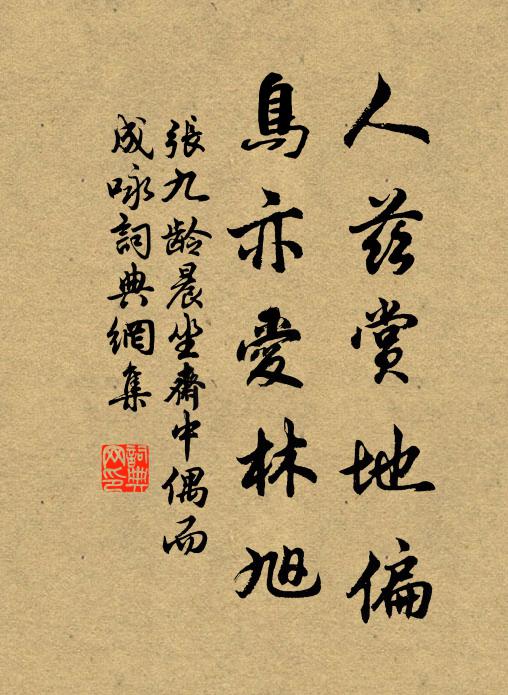 人茲賞地偏
鳥亦愛林旭
張九齡晨坐齋中偶而
成咏詞典網集
詞典网印